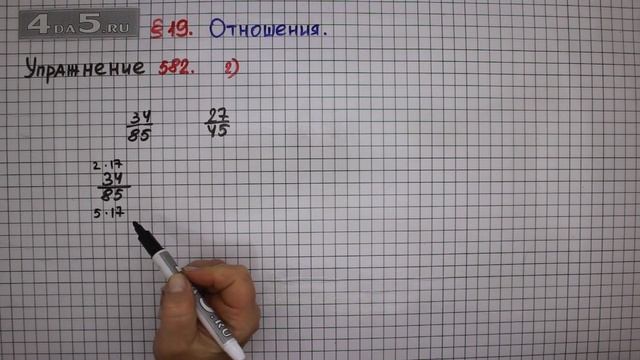 4DA5.RU § 19. Отношения.
Упражнение 582. 2)
34/85 27/45
2·17
34/85
5·17
.RU